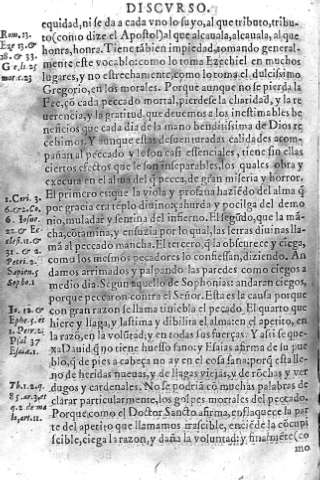 DISCVRSO.
equidad, ni se da a cada vno lo suyo, al que tributo, tribu-
to (como dize el Apostol) al que alcauala, alcauala, al que
honra, honra. Tiene tābien impiedad, tomando general-
mente este vocablo: como lo toma Ezechiel en muchos
lugares, y no estrechamente, como lo toma el dulcissimo
Gregorio, en los morales. Porque aunque no se pierda la
Fee, cō cada peccado mortal, pierdese la charidad, y la re
uerencia, y la gratitud que deuemos a los inestimables be
neficios que cada dia de la mano benditissima de Dios re
cebimos. Y aunque estas desuenturadas calidades acom-
pañan al peccado y le son casi essenciales, tiene sin ellas
ciertos efectos que le son inseparables, los quales obra y
executa en el alma del q̄ pecca, de gran miseria y horror.
El primero es que la viola y profana haziēdo del alma q̄
por gracia era templo diuino, çahurda y pocilga del demo
nio, muladar y sentina del infierno. El segūdo, que la mā-
cha, cōtamina, y ensuzia por lo qual, las letras diuinas lla-
mā al peccado mancha. El tercero, q̄ la obscurece y ciega,
como los mesmos peccadores lo confiessan, diziendo. An
damos arrimados y palpando las paredes como ciegos a
medio dia. Segun aquello de Sophonias: andaran ciegos,
porque peccaron contra el Señor. Esta es la causa porque
con gran razon se llama tiniebla el pecado. El quarto que
hiere y llaga, y lastima y dibilita el alma en el apetito, en
la razon, en la volūtad y en todas sus fuerças. Y assi se que-
xa Dauid q̄ no tiene huesso sano, y Esaias afirma de su pue
blo, q̄ de pies a cabeça no ay en el cosa sana: porq̄ esta lle-
no de heridas nueuas, y de llagas viejas, y de rōchas y ver
dugos y cardenales. No se podria cō muchas palabras de
clarar particularmente, los golpes mortales del peccado.
Porque, como el Doctor Sancto afirma, enflaquece la par
te del apetito que llamamos irascible, enciēde la cōcupi
scible, ciega la razon, y daña la voluntad: y finalmēte (co
mo
Rom. 13.
Eze 13. &
28. & 33.
G e. li. 25
mor c. 23
1. Cori. 3.
6. & 2. Co.
6. Isaiæ.
22. & Ec
cles. 12. &
31. & 2.
Petr. 2.
Sapien. 5
Sopho. 1
Io. 12. &
Ephe. 5. &
1. Petr. 2.
Psal 37
Esaiæ. 1.
Th. 1. 2. q.
85. ar. 3. et
q. 2. de ma
lo, art. 11.